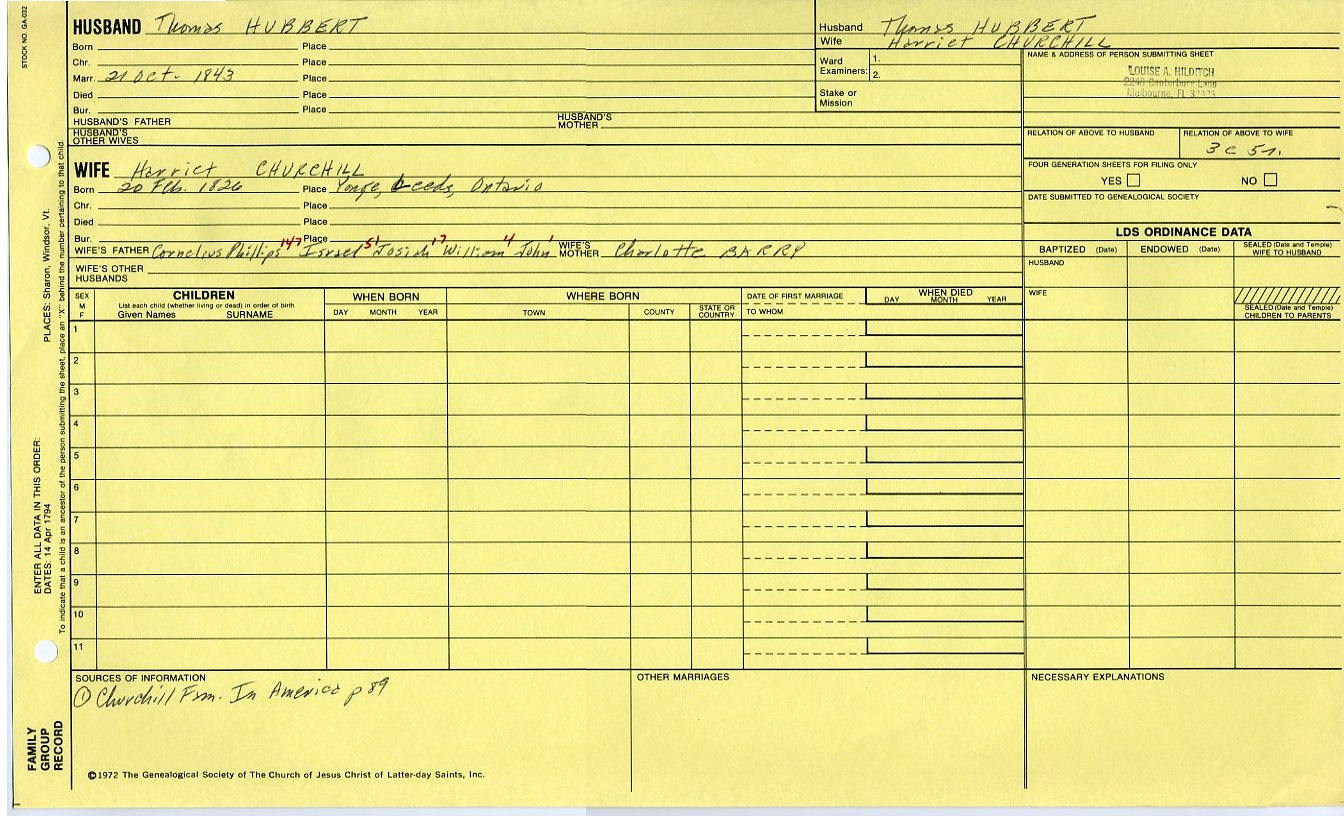 STOCK NO. GA-032
HUSBAND Thomas HUBBERT
Born Place
Chr. Place
Marr. 21 Oct. 1843 Place
Died Place
Bur. Place
HUSBAND'S FATHER HUSBAND'S MOTHER
HUSBAND'S OTHER WIVES
WIFE Harriet CHURCHILL
Born 20 Feb. 1826 Place Yonge, Leeds, Ontario
Chr. Place
Died Place
Bur. Place
WIFE'S FATHER Cornelius Phillips 147 Israel 51 Josiah 17 William 4 John 1 WIFE'S MOTHER Charlotte BARRY
WIFE'S OTHER HUSBANDS
Husband Thomas HUBBERT
Wife Harriet CHURCHILL
Ward Examiners: 1.
2.
Stake or Mission
NAME & ADDRESS OF PERSON SUBMITTING SHEET
LOUISE A. HILDITCH
2240 Canterbury Lane
Melbourne, FL
RELATION OF ABOVE TO HUSBAND RELATION OF ABOVE TO WIFE
3c 5r.
FOUR GENERATION SHEETS FOR FILING ONLY
YES NO
DATE SUBMITTED TO GENEALOGICAL SOCIETY
LDS ORDINANCE DATA
BAPTIZED (Date) ENDOWED (Date) SEALED (Date and Temple) WIFE TO HUSBAND
HUSBAND
WIFE
SEALED (Date and Temple) CHILDREN TO PARENTS
SEX M F
CHILDREN
List each child (whether living or dead) in order of birth
Given Names SURNAME
WHEN BORN
DAY MONTH YEAR
WHERE BORN
TOWN COUNTY STATE OR COUNTRY
DATE OF FIRST MARRIAGE
TO WHOM
WHEN DIED
DAY MONTH YEAR
1
2
3
4
5
6
7
8
9
10
11
SOURCES OF INFORMATION
① Churchill Fam. In America p 89
OTHER MARRIAGES
NECESSARY EXPLANATIONS
©1972 The Genealogical Society of The Church of Jesus Christ of Latter-day Saints, Inc.
FAMILY GROUP RECORD
ENTER ALL DATA IN THIS ORDER:
DATES: 14 Apr 1794
PLACES: Sharon, Windsor, Vt.
To indicate that a child is an ancestor of the person submitting the sheet, place an "X" behind the number pertaining to that child.